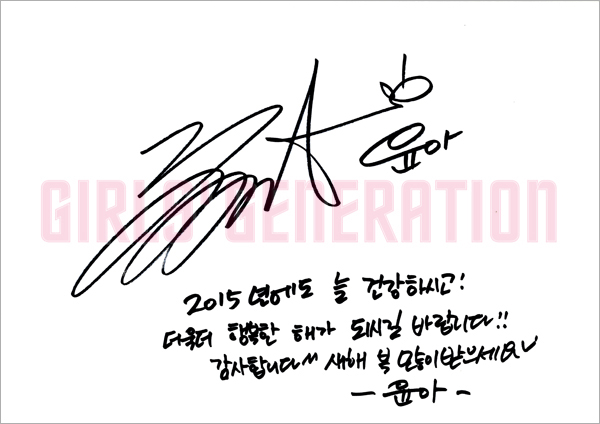 윤아
GIRLS' GENERATION
2015년에도 늘 건강하시고!
더욱더 행복한 해가 되시길 바랍니다!!
감사합니다^^ 새해 복 많이받으세요
- 윤아 -